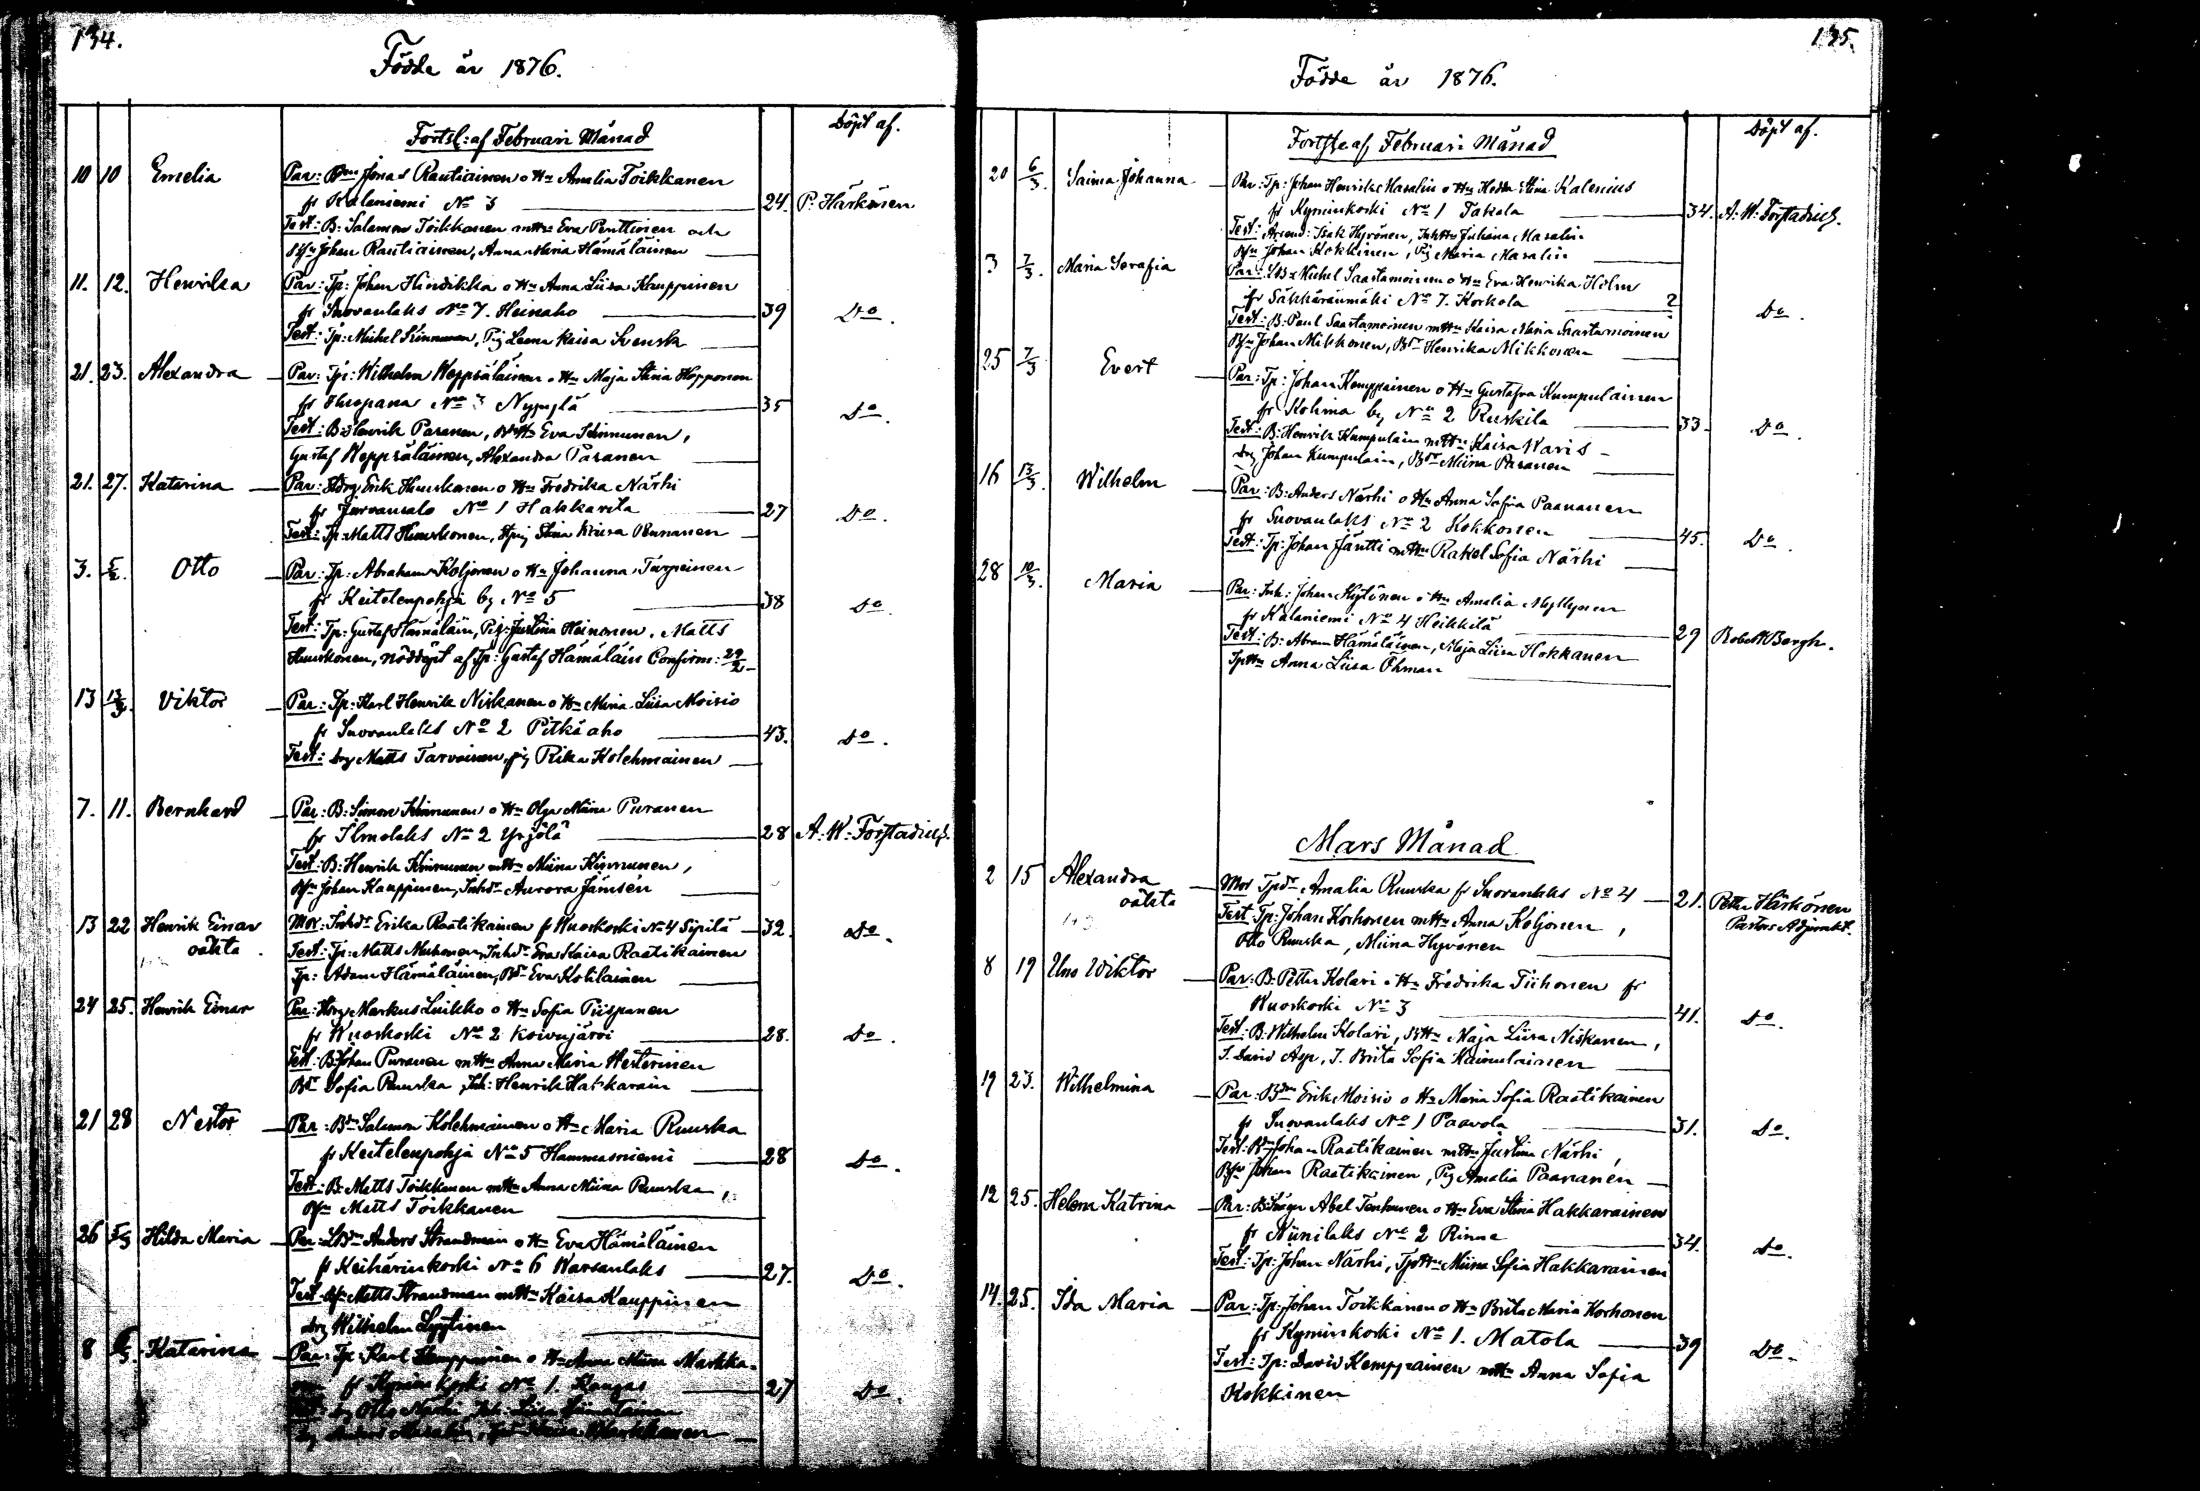 134.
Födde år 1876.
Forts: af Februari Månad
Döpt af.
10 10 Emelia Par: Bm Jonas Rautiainen o Hu Amalia Toikkanen
fr Kalaniemi No 3 24. P. Härkönen
Test: B: Salamon Toikkanen mHu Eva Penttinen och
Bsn Johan Rautiainen, Anna Maria Hämäläinen
11. 12. Henrika Par: Tp: Johan Hindikka o Hu Anna Liisa Kauppinen
fr Suovanlaks No 7. Heinaho 39 Do.
Test: Tp: Michel Kinnunen, Pig Leena Kaisa Svensk
21. 23. Alexandra Par: Tp: Wilhelm Weppsäläinen o Hu Maja Stina Hopponen
fr No 3 Nyypylä 35 Do.
Test: B: Henrik Paranen, BHu Eva Kinnunen,
Gustaf Weppsäläinen, Alexandra Paranen
21. 27. Katarina Par: Erik Huuskonen o Hu Fredrika Närhi
fr Jurvansalo No 1 Hakkarila 27 Do.
Test: Tp: Matts Huuskonen, Stina Kaisa
3. 5/2. Otto Par: Tp: Abraham Koljonen o Hu Johanna Turpeinen
fr Keitelenpohja by No 5 38 Do.
Test: Tp: Gustaf Hämäläin, Pig: Justina Heinonen, Matts
Huuskonen, nöddöpt af Tp: Gustaf Hämäläin Confirm: 29/2
13 13/3. Viktor Par: Tp: Karl Henrik Niskanen o Hu Miina Liisa Moisio
fr Suovanlaks No 2 Pitkäaho 43. Do.
Test: Drg Matts Tarvainen, pig Rika Kolehmainen
7. 11. Bernhard Par: B: Simon Kinnunen o Hu Olga Miina Puranen
fr Ilmolaks No 2 Yrjölä 28 A. W. Forstadius.
Test: B: Henrik Kinnunen mHu Miina Kinnunen,
Bsn Johan Kauppinen, Inhdr Aurora Jämsén
13 22 Henrik Einar Mor: Inhdr Erika Raatikainen fr Wuoskoski No 4 Sipilä 32. Do.
oäkta. Test: Tp: Matts Muhonen, Inhdr Eva Kaisa Raatikainen
Tp: Adam Hämäläinen, Bdr Eva Kotilainen
24 25. Henrik Einar Par: Markus Luikko o Hu Sofia Piispanen
fr Wuoskoski No 2 Koivujärvi 28. Do.
Test: B: Johan Puranen mHu Anna Maria Westerinen
Bdr Sofia Ruuska, Inh: Henrik Hakkarain
21 28 Nestor Par: Bm Salamon Kolehmainen o Hu Maria Ruuska
fr Keitelenpohja No 5 Hammasniemi 28 Do.
Test: B: Matts Toikkanen mHu Anna Miina Ruuska,
Bsn Matts Toikkanen
26 5/3 Hilda Maria Par: LBm Anders Strandman o Hu Eva Hämäläinen
fr Keihärinkoski No 6 Wassanlaks 27. Do.
Test: Matts Strandman mHu Kaisa Kauppinen
Drg Wilhelm Lyytinen
8 6/3. Katarina Par: Tp: Karl Kemppainen o Hu Anna Miina Markka-
nen fr Kyminkoski No 1. Kangas 27 Do.
Otto
135.
Födde år 1876.
Forts: af Februari Månad
Döpt af.
20 6/3. Saima Johanna Par: Tp: Johan Henrik Masalin o Hu Hedda Stina Kalenius
fr Kyminkoski No 1 Takala 34. A. W. Forstadius.
Test: Arrend: Isak Hyvönen, InhHu Juliana Masalin
Bsn Johan Kokkinen, Pig Maria Masalin
3 7/3. Maria Serafia Par: LB: Michel Saastamoinen o Hu Eva Henrika Holm
fr Säkkäränmäki No 7. Korkola ? Do.
Test: B: Paul Saastamoinen mHu Kaisa Maria Saastamoinen
Bsn Johan Mikkonen, Bdr Henrika Mikkonen
25 7/3 Evert Par: Tp: Johan Kemppainen o Hu Gustafva Kumpulainen
fr Kolima by No 2 Ruskila 33 Do.
Test: B: Henrik Kumpulain mHu Kaisa Waris
Drg Johan Kumpulain, Bdr Miina Paranen
16 13/3. Wilhelm Par: B: Anders Närhi o Hu Anna Sofia Paananen
fr Suovanlaks No 2 Kokkonen 45. Do.
Test: Tp: Johan Jäntti mHu Rakel Sofia Närhi
28 10/3. Maria Par: Inh: Johan Hytönen o Hu Amalia Myllynen
fr Kalaniemi No 4 Heikkilä 29 Robert Bergh.
Test: B: Abram Hämäläinen, Maja Liisa Hokkanen
TpHu Anna Liisa Öhman
Mars Månad
2 15 Alexandra Mor Tpdr Amalia Ruuska fr Suovanlaks No 4 21. Petter Härkönen
oäkta Test Tp: Johan Korhonen mHu Anna Koljonen, Pastors Adjunkt.
Otto Ruuska, Miina Hyvönen
8 19 Uno Wiktor Par: B: Petter Kolari o Hu Fredrika Tiihonen fr
Wuoskoski No 3 41. Do.
Test: B: Wilhelm Kolari, BHu Maja Liisa Niskanen,
I. David Asp, I. Brita Sofia Kainulainen
19 23. Wilhelmina Par: Bm Erik Moisio o Hu Maria Sofia Raatikainen
fr Suovanlaks No 1 Paavola 31. Do.
Test: Bm Johan Raatikainen mHu Justina Närhi,
Bsn Johan Raatikainen, Pig Amalia Paananen
12 25. Helena Katrina Par: Abel Tenhunen o Hu Eva Stina Hakkarainen
fr Niinilaks No 2 Rinne 34. Do.
Test: Tp: Johan Närhi, TpHu Miina Sofia Hakkarainen
14. 25. Ida Maria Par: Tp: Johan Toikkanen o Hu Brita Maria Korhonen
fr Kyminkoski No 1. Matola 39 Do.
Test: Tp: David Kemppainen mHu Anna Sofia
Kokkinen